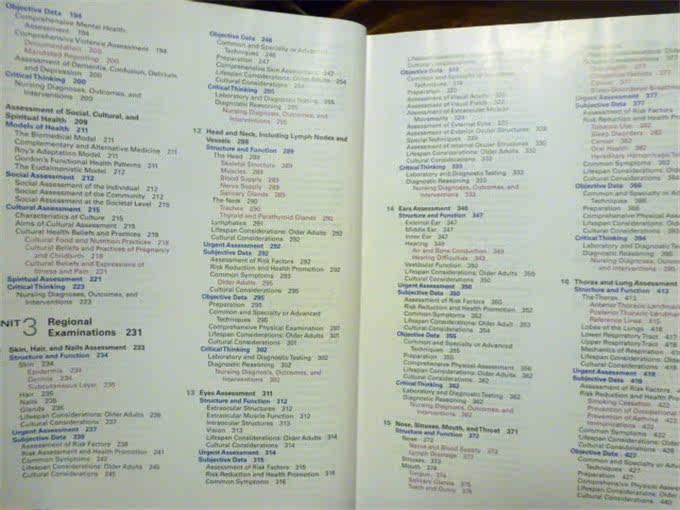 Objective Data 194
Comprehensive Mental Health
Assessment 194
Comprehensive Violence Assessment 194
Documentation 200
Mandated Reporting 200
Assessment of Dementia, Confusion, Delirium,
and Depression 200
Critical Thinking 200
Nursing Diagnoses, Outcomes, and
Interventions 200
Assessment of Social, Cultural, and
Spiritual Health 209
Models of Health 211
The Biomedical Model 211
Complementary and Alternative Medicine 211
Roy's Adaptation Model 211
Gordon's Functional Health Patterns 211
The Eudaimonistic Model 212
Social Assessment 212
Social Assessment of the Individual 212
Social Assessment of the Community 212
Social Assessment at the Societal Level 215
Cultural Assessment 215
Characteristics of Culture 215
Aims of Cultural Assessment 215
Cultural Health Beliefs and Practices 218
Cultural Food and Nutrition Practices 218
Cultural Beliefs and Practices of Pregnancy
and Childbirth 219
Cultural Beliefs and Expressions of
Illness and Pain 221
Spiritual Assessment 221
Critical Thinking 223
Nursing Diagnoses, Outcomes, and
Interventions 223
NIT 3 Regional
Examinations 231
Skin, Hair, and Nails Assessment 233
Structure and Function 234
Skin 234
Epidermis 234
Dermis 234
Subcutaneous Layer 235
Hair 235
Nails 235
Glands 236
Lifespan Considerations: Older Adults 236
Cultural Considerations 237
Urgent Assessment 237
Subjective Data 238
Assessment of Risk Factors 238
Risk Assessment and Health Promotion 241
Common Symptoms 242
Lifespan Considerations: Older Adults 245
Cultural Considerations 245
Objective Data 246
Common and Specialty or Advanced
Techniques 246
Preparation 247
Comprehensive Skin Assessment 247
Lifespan Considerations: Older Adults 254
Cultural Considerations 254
Critical Thinking 255
Laboratory and Diagnostic Testing 255
Diagnostic Reasoning 255
Nursing Diagnoses, Outcomes, and
Interventions 255
12 Head and Neck, Including Lymph Nodes and
Vessels 288
Structure and Function 289
The Head 289
Skeletal Structure 289
Muscles 289
Blood Supply 289
Nerve Supply 289
Salivary Glands 289
The Neck 290
Trachea 290
Thyroid and Parathyroid Glands 290
Lymphatics 291
Lifespan Considerations: Older Adults 292
Cultural Considerations 292
Urgent Assessment 292
Subjective Data 292
Assessment of Risk Factors 292
Risk Reduction and Health Promotion 292
Common Symptoms 293
Older Adults 295
Cultural Considerations 295
Objective Data 295
Preparation 295
Common and Specialty or Advanced
Techniques 295
Comprehensive Physical Examination 297
Lifespan Considerations: Older Adults 301
Cultural Considerations 301
Critical Thinking 302
Laboratory and Diagnostic Testing 302
Diagnostic Reasoning 302
Nursing Diagnosis, Outcomes, and
Interventions 302
13 Eyes Assessment 311
Structure and Function 312
Extraocular Structures 312
Extraocular Muscle Function 312
Intraocular Structures 313
Vision 313
Lifespan Considerations: Older Adults 314
Cultural Considerations 314
Urgent Assessment 314
Subjective Data 315
Assessment of Risk Factors 315
Risk Reduction and Health Promotion 315
Common Symptoms 316
Objective Data
Common and Specialty or Advanced
Techniques 324
Preparation 325
Assessment of Visual Acuity
Assessment of Visual Fields
Assessment of Extraocular Muscle
Movements 324
Assessment of External Eyes
Assessment of Exterior Ocular Structures 328
Special Techniques 329
Assessment of Internal Ocular Structures 330
Lifespan Considerations: Older Adults 332
Cultural Considerations 332
Critical Thinking 333
Laboratory and Diagnostic Testing 333
Diagnostic Reasoning 333
Nursing Diagnoses, Outcomes, and
Interventions 333
14 Ears Assessment 346
Structure and Function 347
External Ear 347
Middle Ear 347
Inner Ear 347
Hearing 349
Air and Bone Conduction 349
Hearing Difficulties 349
Vestibular Function 350
Lifespan Considerations: Older Adults 350
Cultural Considerations 350
Urgent Assessment 350
Subjective Data 350
Assessment of Risk Factors 350
Risk Reduction and Health Promotion 352
Common Symptoms 352
Lifespan Considerations: Older Adult 353
Cultural Considerations 354
Objective Data 355
Common and Specialty or Advanced
Techniques 355
Preparation 355
Comprehensive Physical Assessment 356
Lifespan Considerations: Older Adults 362
Cultural Considerations 362
Critical Thinking 362
Laboratory and Diagnostic Testing 362
Diagnostic Reasoning 362
Nursing Diagnoses, Outcomes, and
Interventions 362
15 Nose, Sinuses, Mouth, and Throat 371
Structure and Function 372
Nose 372
Nerve and Blood Supply
Lymph Drainage 373
Sinuses 373
Mouth 374
Tongue 374
Salivary Glands 375
Teeth and Gums 375
Urgent Assessment 377
Subjective Data 377
Assessment of Risk Factors
Risk Reduction and Health Pro
Tobacco Use 382
Sleep Disorders 382
Cancer 382
Oral Health 382
Hereditary Hemorrhagic Te
Common Symptoms 382
Lifespan Considerations: Old
Cultural Considerations
Objective Data 386
Common and Specialty or Ad
Techniques 386
Preparation 386
Comprehensive Physical Asse
Lifespan Considerations: Older
Cultural Considerations 394
Critical Thinking 394
Laboratory and Diagnostic Test
Diagnostic Reasoning 395
Nursing Diagnoses, Outco
and Interventions 395
16 Thorax and Lung Assessment
Structure and Function 413
The Thorax 413
Anterior Thoracic Landmar
Posterior Thoracic Landmar
Reference Lines 415
Lobes of the Lungs 416
Lower Respiratory Tract 417
Upper Respiratory Tract 418
Mechanics of Respiration
Lifespan Considerations: Older
Cultural Considerations 418
Urgent Assessment 419
Subjective Data 419
Assessment of Risk Factors
Risk Reduction and Health Pro
Smoking Cessation 422
Prevention of Occupational
Prevention of Asthma 422
Immunizations 422
Common Symptoms 422
Lifespan Considerations: Older
Cultural Considerations
Objective Data 427
Common and Specialty or Adv
Techniques 427
Preparation 427
Comprehensive Physical Assess
Lifespan Considerations: Older
Cultural Considerations 440